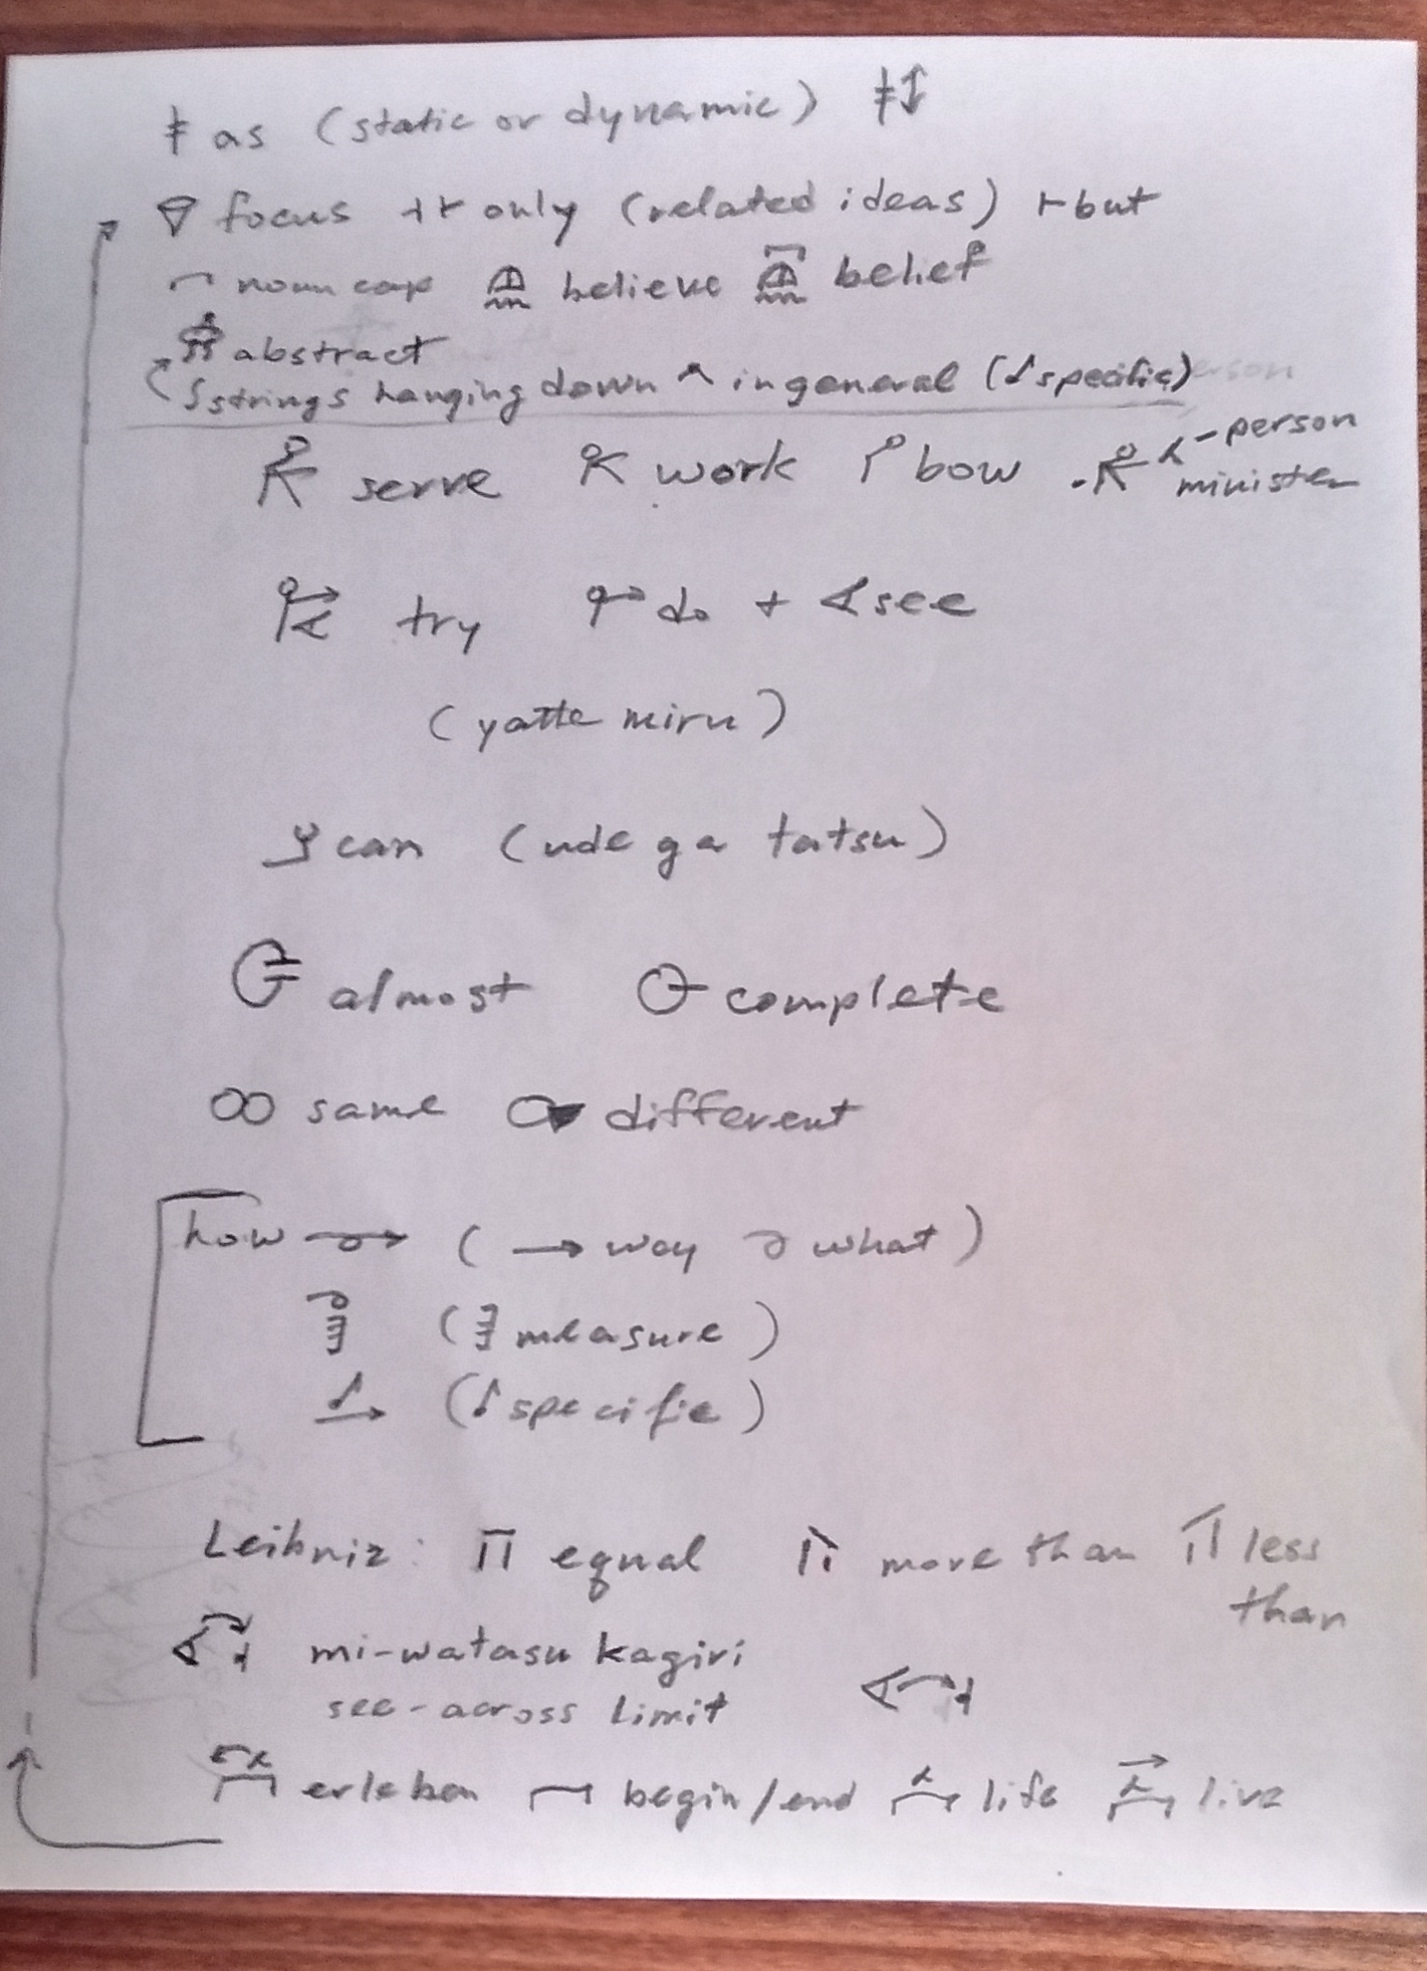 as (static or dynamic)
focus only (related ideas) but
noun cap believe belief
abstract
strings hanging down in general (specific)
serve work bow -person
minister
try do + see
(yatte miru)
can (ude ga tatsu)
almost complete
same different
how → ( → way what)
(measure)
(specific)
Leibniz: equal more than less
than
mi-watasu kagiri
see-across limit
erleben begin/end life live